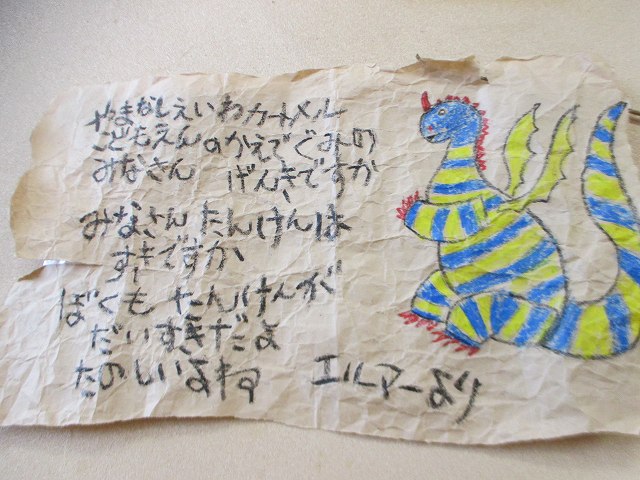 やまなしえいわカートメル
こどもえんのかえでぐみの
みなさん げんきですか
みなさんたんけんは
すきですか
ぼくもたんけんが
だいすきだよ
たのしいよね エルマーより